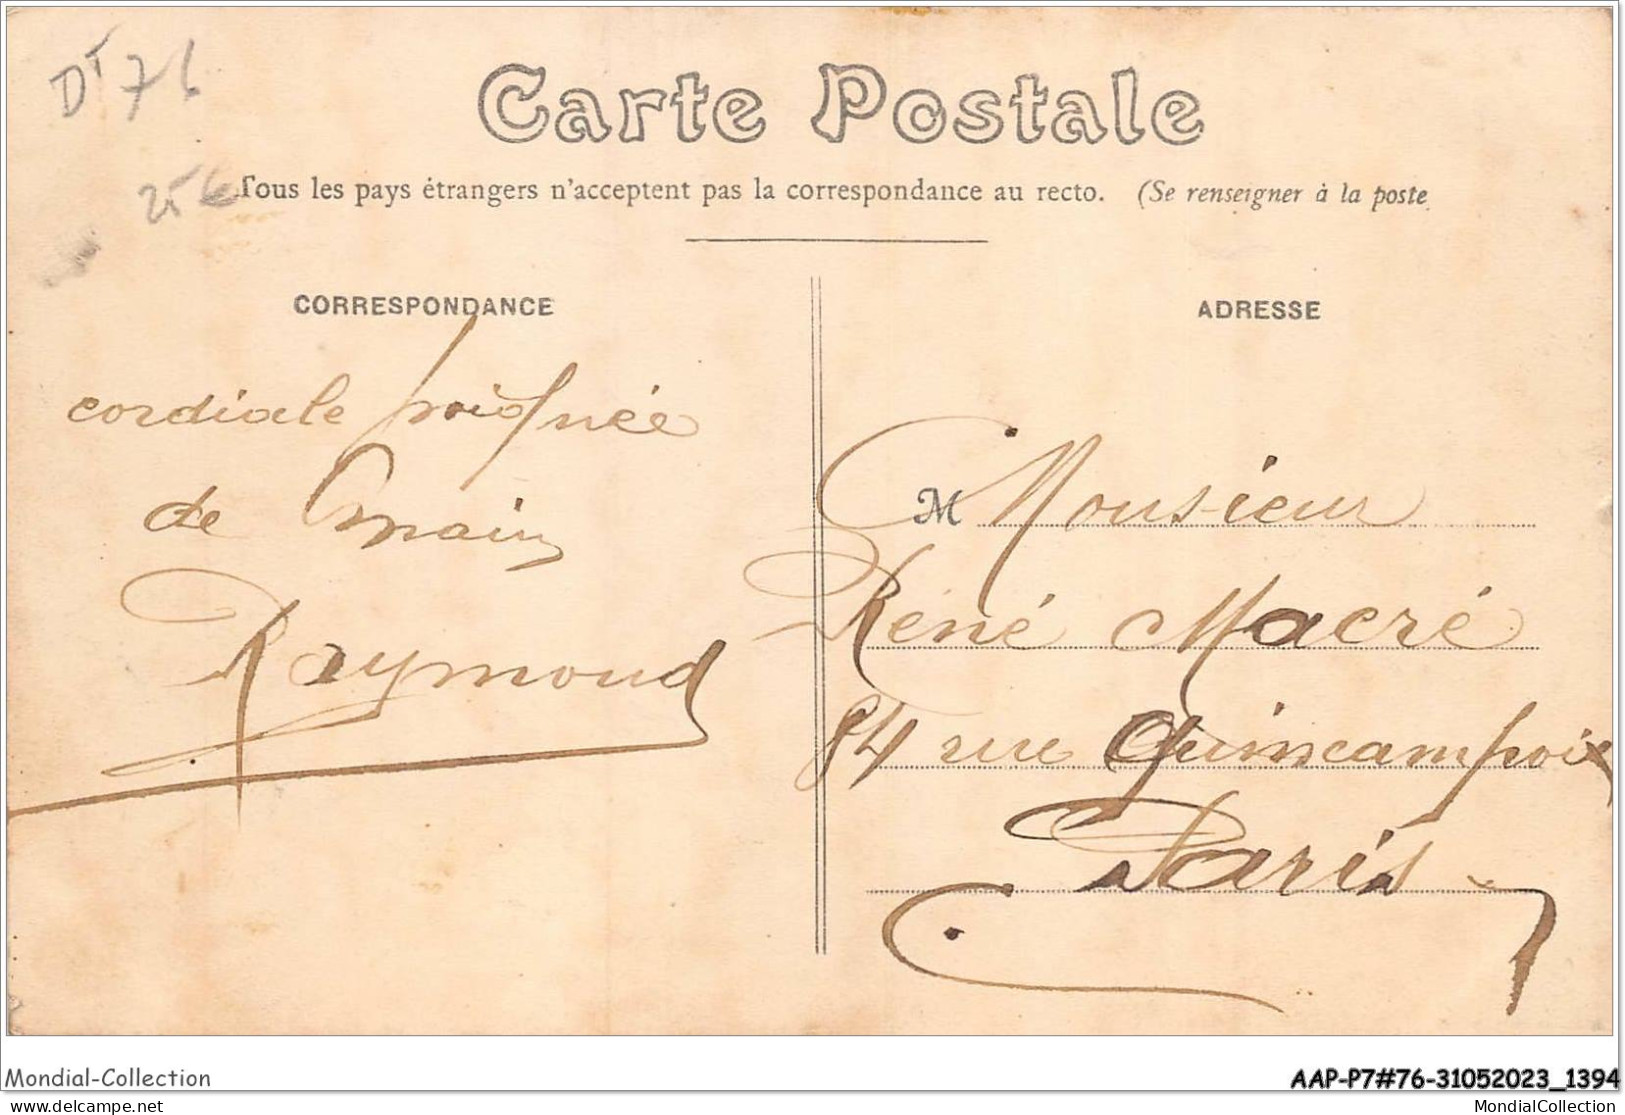 DT 76
Carte Postale
25€
Tous les pays étrangers n'acceptent pas la correspondance au recto. (Se renseigner à la poste
CORRESPONDANCE
ADRESSE
cordiale poignée
de main
Raymond
M Monsieur
René Macré
84 rue Quincampoix
Paris
Mondial-Collection
AAP-P7#76-31052023_1394
www.delcampe.net
MondialCollection